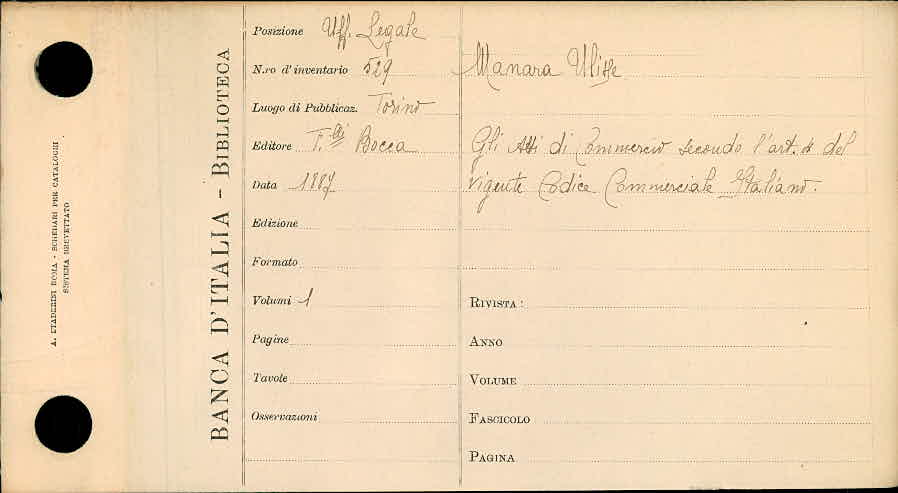 A. STADERINI ROMA - SCHEDARI PER CATALOGHI
SISTEMA BREVETTATO
BANCA D'ITALIA - BIBLIOTECA
Posizione Uff. Legale
N.ro d'inventario 529
Luogo di Pubblicaz. Torino
Editore F.lli Bocca
Data 1887
Edizione
Formato
Volumi 1
Pagine
Tavole
Osservazioni
Manara Ulisse
Gli Atti di Commercio secondo l'art. 4 del
vigente Codice Commerciale Italiano.
RIVISTA:
ANNO
VOLUME
FASCICOLO
PAGINA